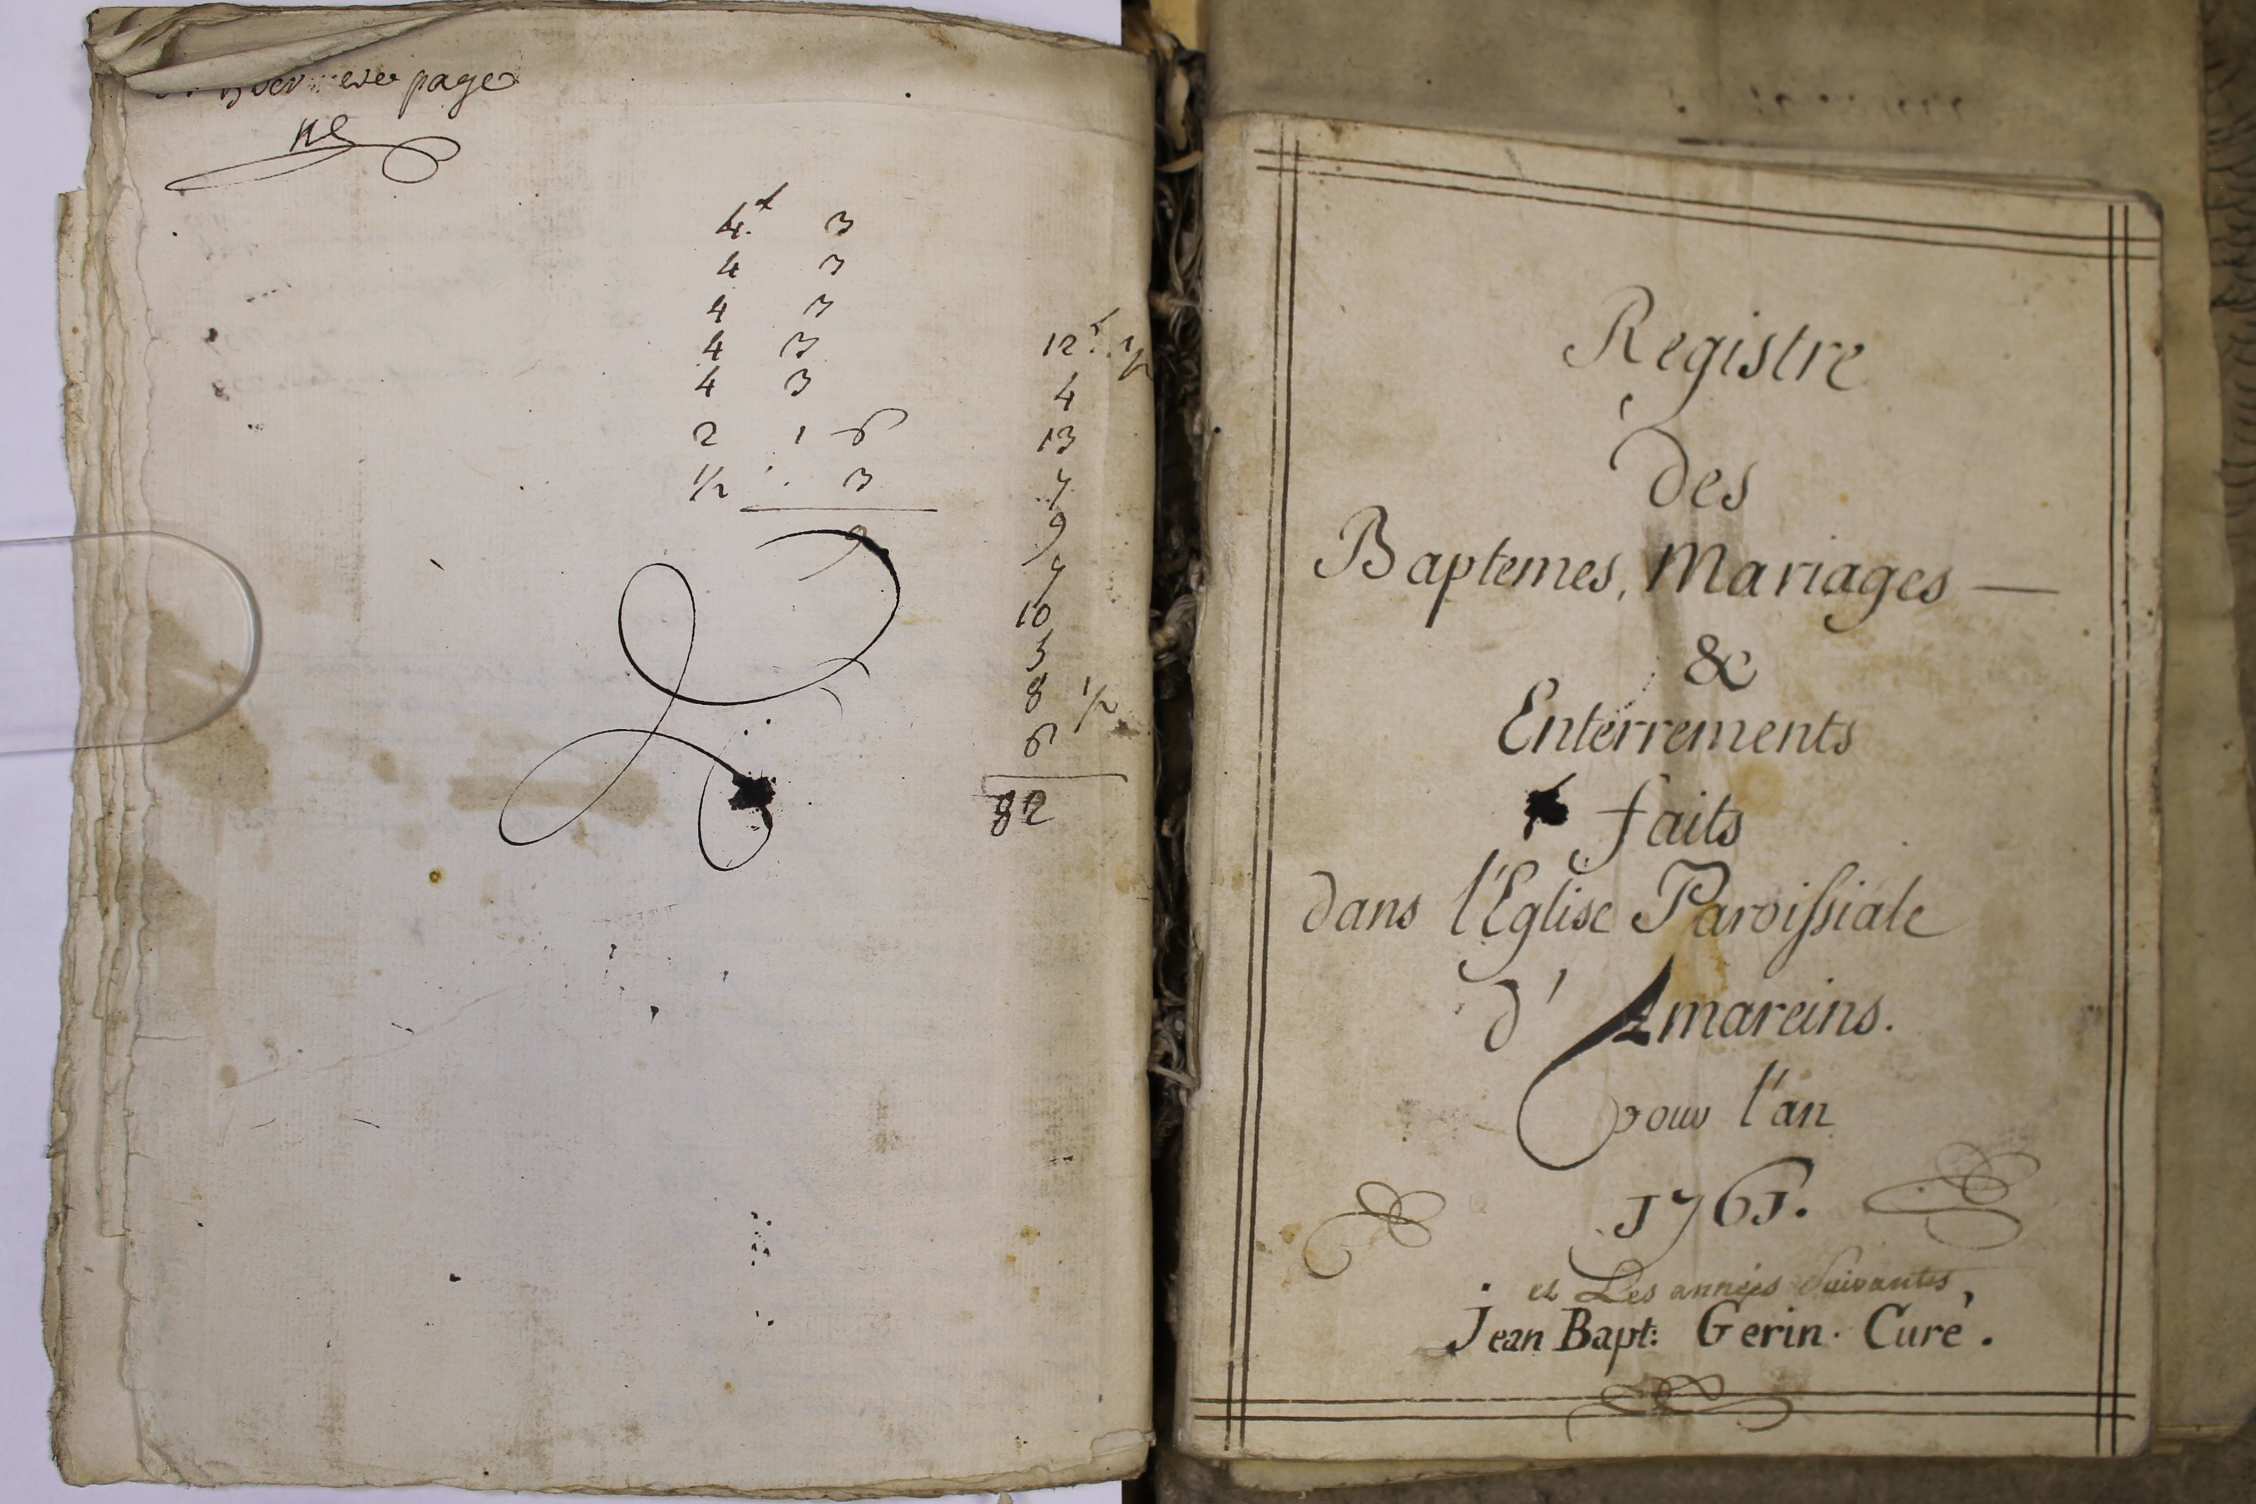 page
4 3
4 3
4 3
4 3
4 3
2 1 6
1/2 3
9
12 1/2
4
13
7
9
7
10
5
8 1/2
6
82
Registre
des
Baptemes, Mariages —
&
Enterrements
faits
dans l'Eglise Paroissiale
d'Amareins.
pour l'an
1761.
et Les années Suivantes,
Jean Bapt: Gerin. Curé.